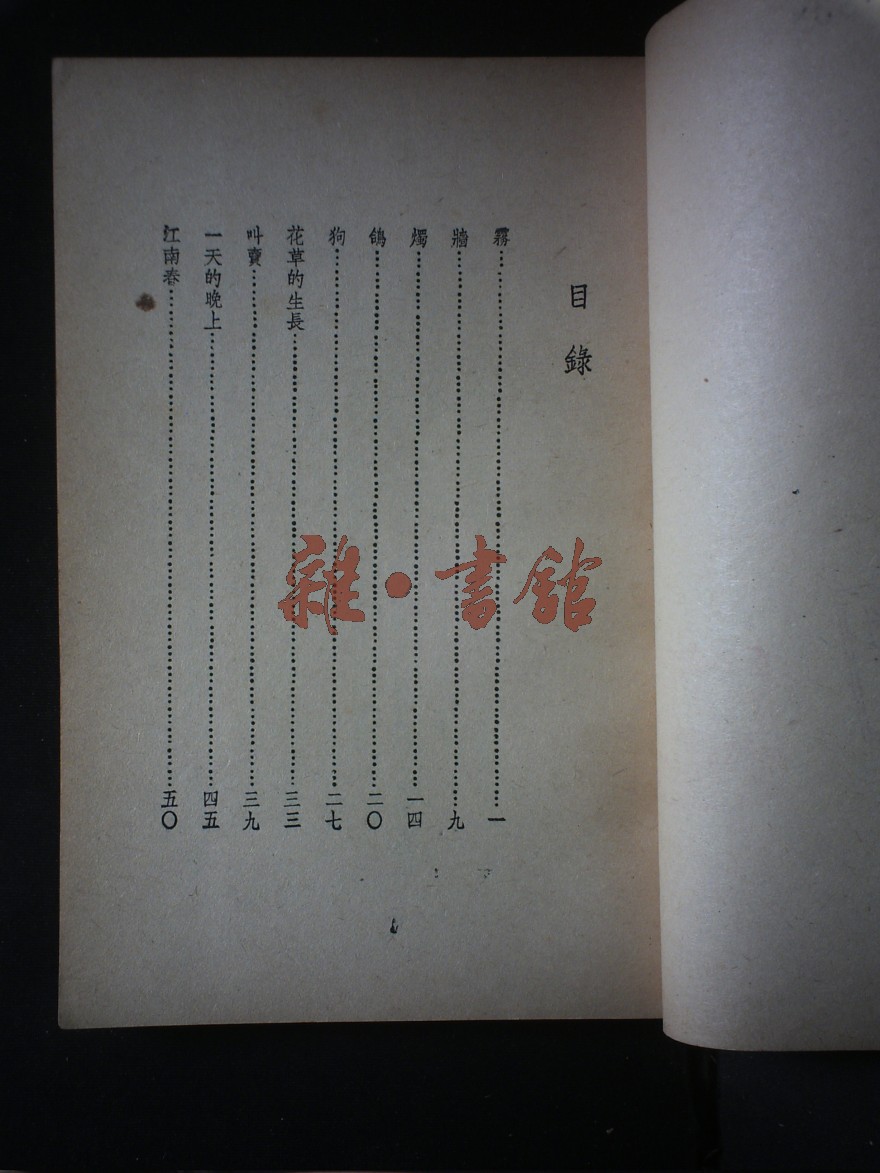 目錄
霧……一
牆……九
燭……一四
鴿……二〇
狗……二七
花草的生長……三三
叫賣……三九
一天的晚上……四五
江南春……五〇
雜·書館